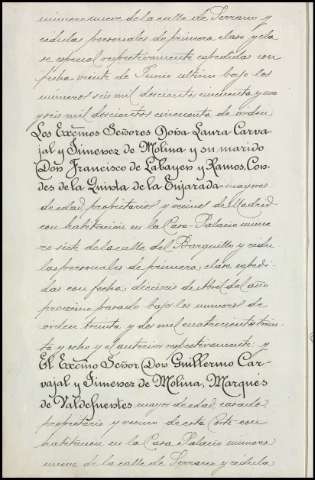 número nueve de la calle de Serrano y
cédulas personales de primera clase y cla
se especial respectivamente expedidas con
fecha veinte de Junio último bajo los
números seis mil doscientos cincuenta y uno
y seis mil doscientos cincuenta de orden
Los Excmos Señores Doña Laura Carva
jal y Jimenez de Molina y su marido
Don Francisco de Labayen y Ramos, Con
des de la Quinta de la Enjarada mayores
de edad, propietarios y vecinos de Madrid
con habitación en la Casa-Palacio núme
ro siete de la calle del Barquillo y cédu
las personales de primera clase expedi
das con fecha dieciseis de Abril del año
proximo pasado bajo los números de
orden treinta y dos mil cuatrocientos trein
ta y ocho y el anterior respectivamente: y
El Excmo Señor Don Guillermo Car-
vajal y Jimenez de Molina, Marques
de Valdefuentes mayor de edad, casado
propietario y vecino de esta Corte con
habitación en la Casa Palacio número
nueve de la calle de Serrano y cédula